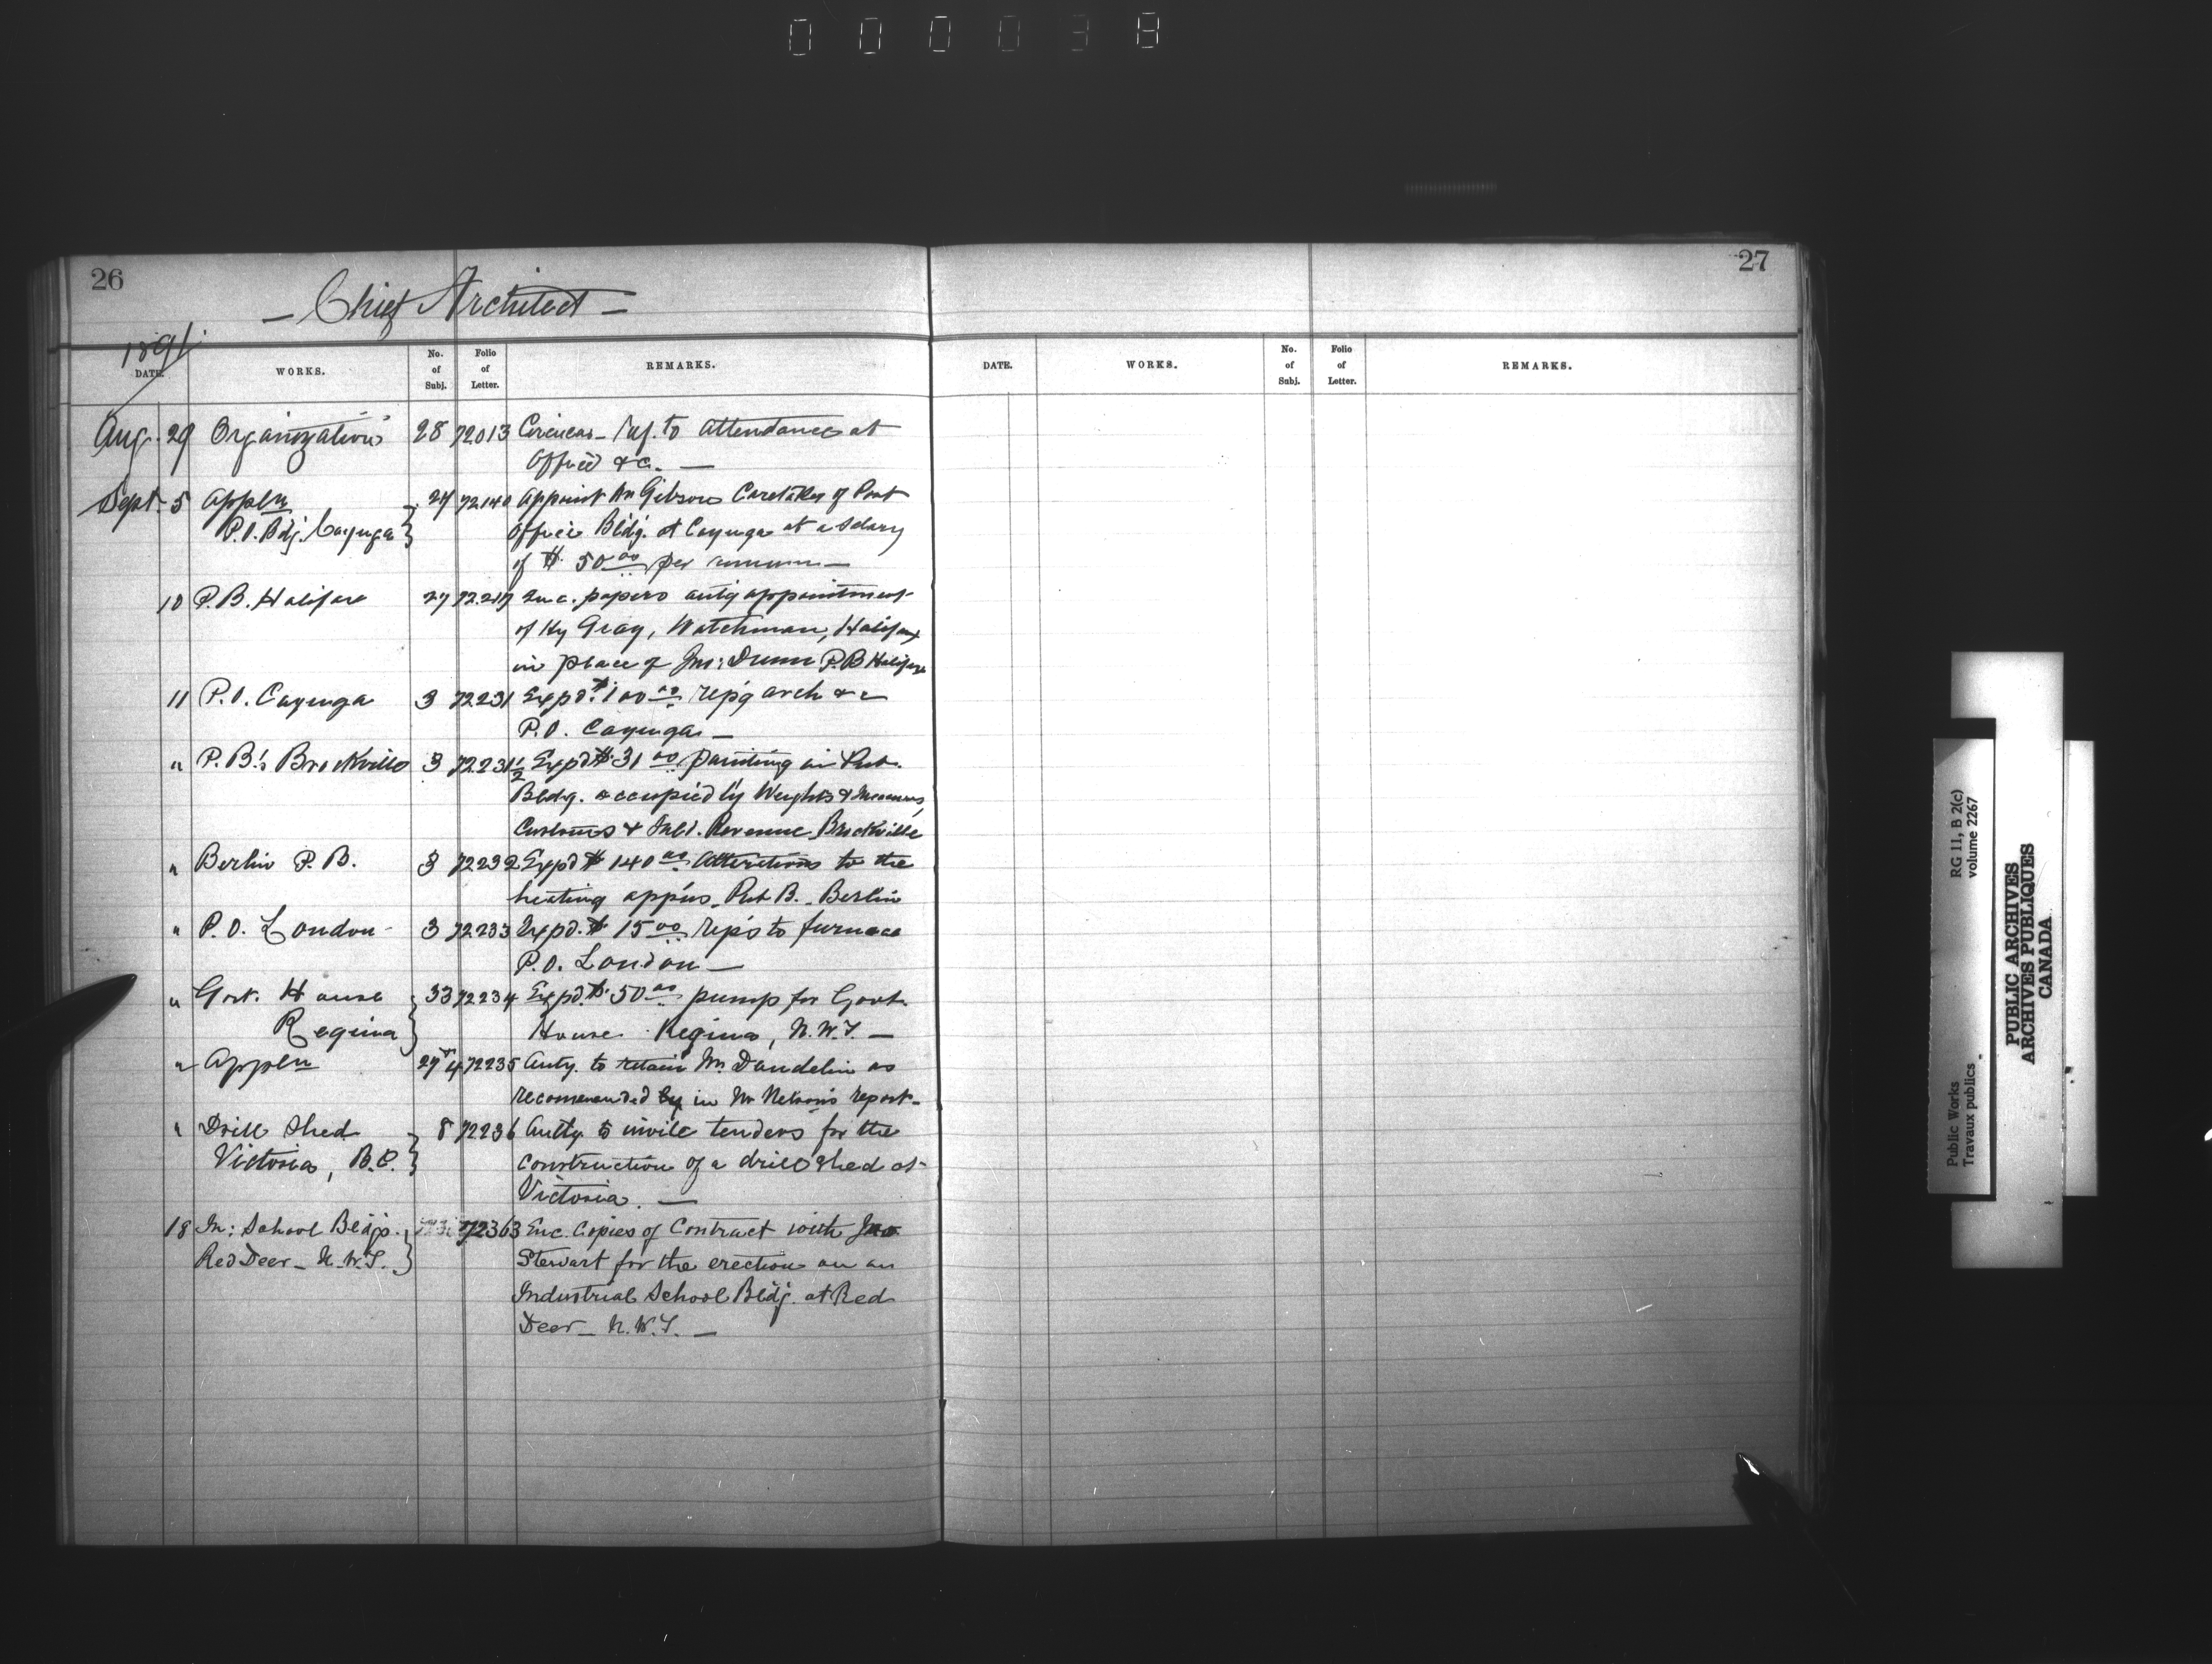 000038
26
- Chief Architect -
1891
DATE. WORKS. No. of Subj. Folio of Letter. REMARKS.
Aug. 29 Organization 28 72013 Circular - to attendance at
Office &c. —
Sept. 5 Appln 27 72140 Appoint Mr Gibson Caretaker of Post
P.O. Bdg. Cayuga } Office Bldg. at Cayuga at a salary
of $ 50 00 per annum —
10 P.B. Halifax 27 72217 Enc. papers auty appointment
of Hy Gray, Watchman, Halifax
in place of Jno: Dunn P.B Halifax
11 P.O. Cayuga 3 72231 Expd. $ 100 00 rep'g arch &c
P.O. Cayuga —
" P.B's Brockville 3 72231½ Expd $ 31 00 painting in Pub.
Bldg. occupied by Weights & Measures,
Customs & Inld. Revenue Brockville
" Berlin P.B. 3 72232 Expd $ 140 00 Alterations to the
heating app'us Pub B. Berlin
" P.O. London 3 72233 Expd. $ 15 00 rep's to furnace
P.O. London —
" Govt. House 33 72234 Expd. $ 50 00 pump for Govt.
Regina } House Regina, N.W.T. —
" Appln 27 & 4 72235 Auty. to retain Mr Dandelin as
recommended by in Mr Nelson's report -
" Drill Shed 8 72236 Authy. to invite tenders for the
Victoria, B.C. } construction of a drill shed at
Victoria. —
18 In: School Bldgs. 72363 Enc. Copies of Contract with Jno
Red Deer - N.W.T. } Stewart for the erection on an
Industrial School Bldg. at Red
Deer - N.W.T. —
27
DATE. WORKS. No. of Subj. Folio of Letter. REMARKS.
Public Works
Travaux publics
RG 11, B 2(c)
volume 2267
PUBLIC ARCHIVES
ARCHIVES PUBLIQUES
CANADA